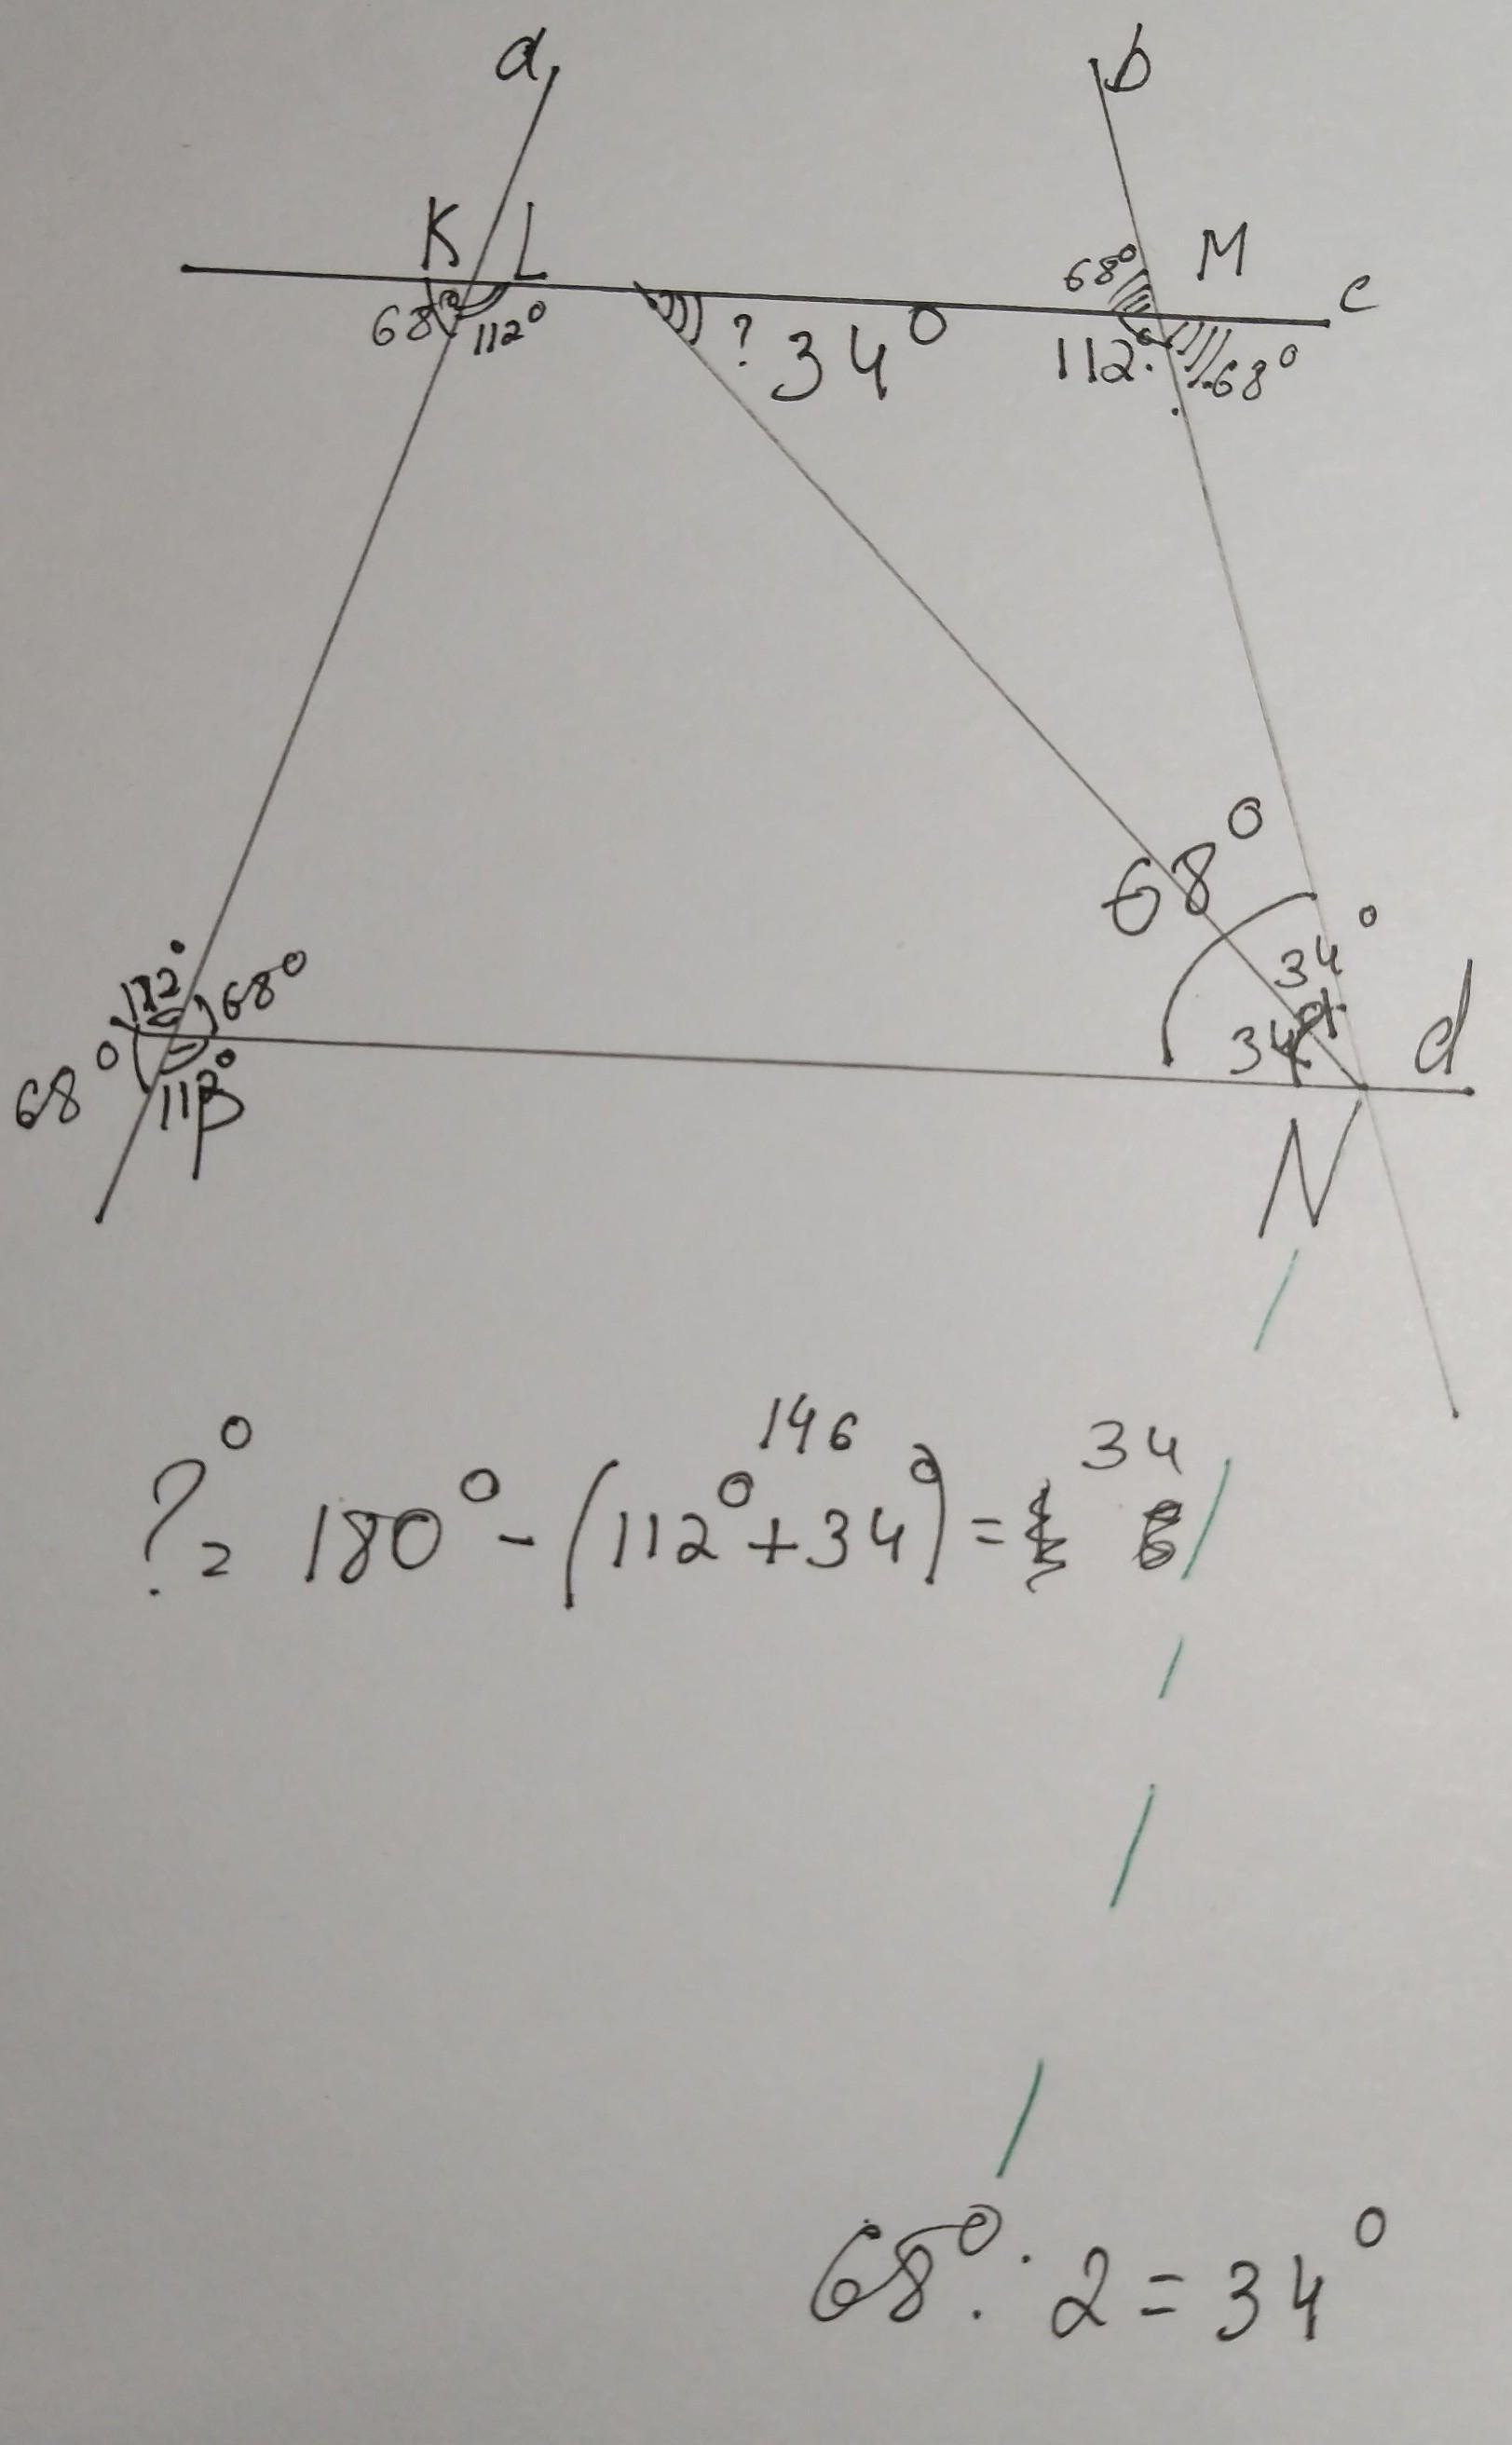 a b
K L 68° M
68° 112° ? 34° 112° 68° c
68°
34°
112° 68° 34 α d
68° 11 β
N
146 34
?° = 180° - (112° + 34°) =
68° : 2 = 34°